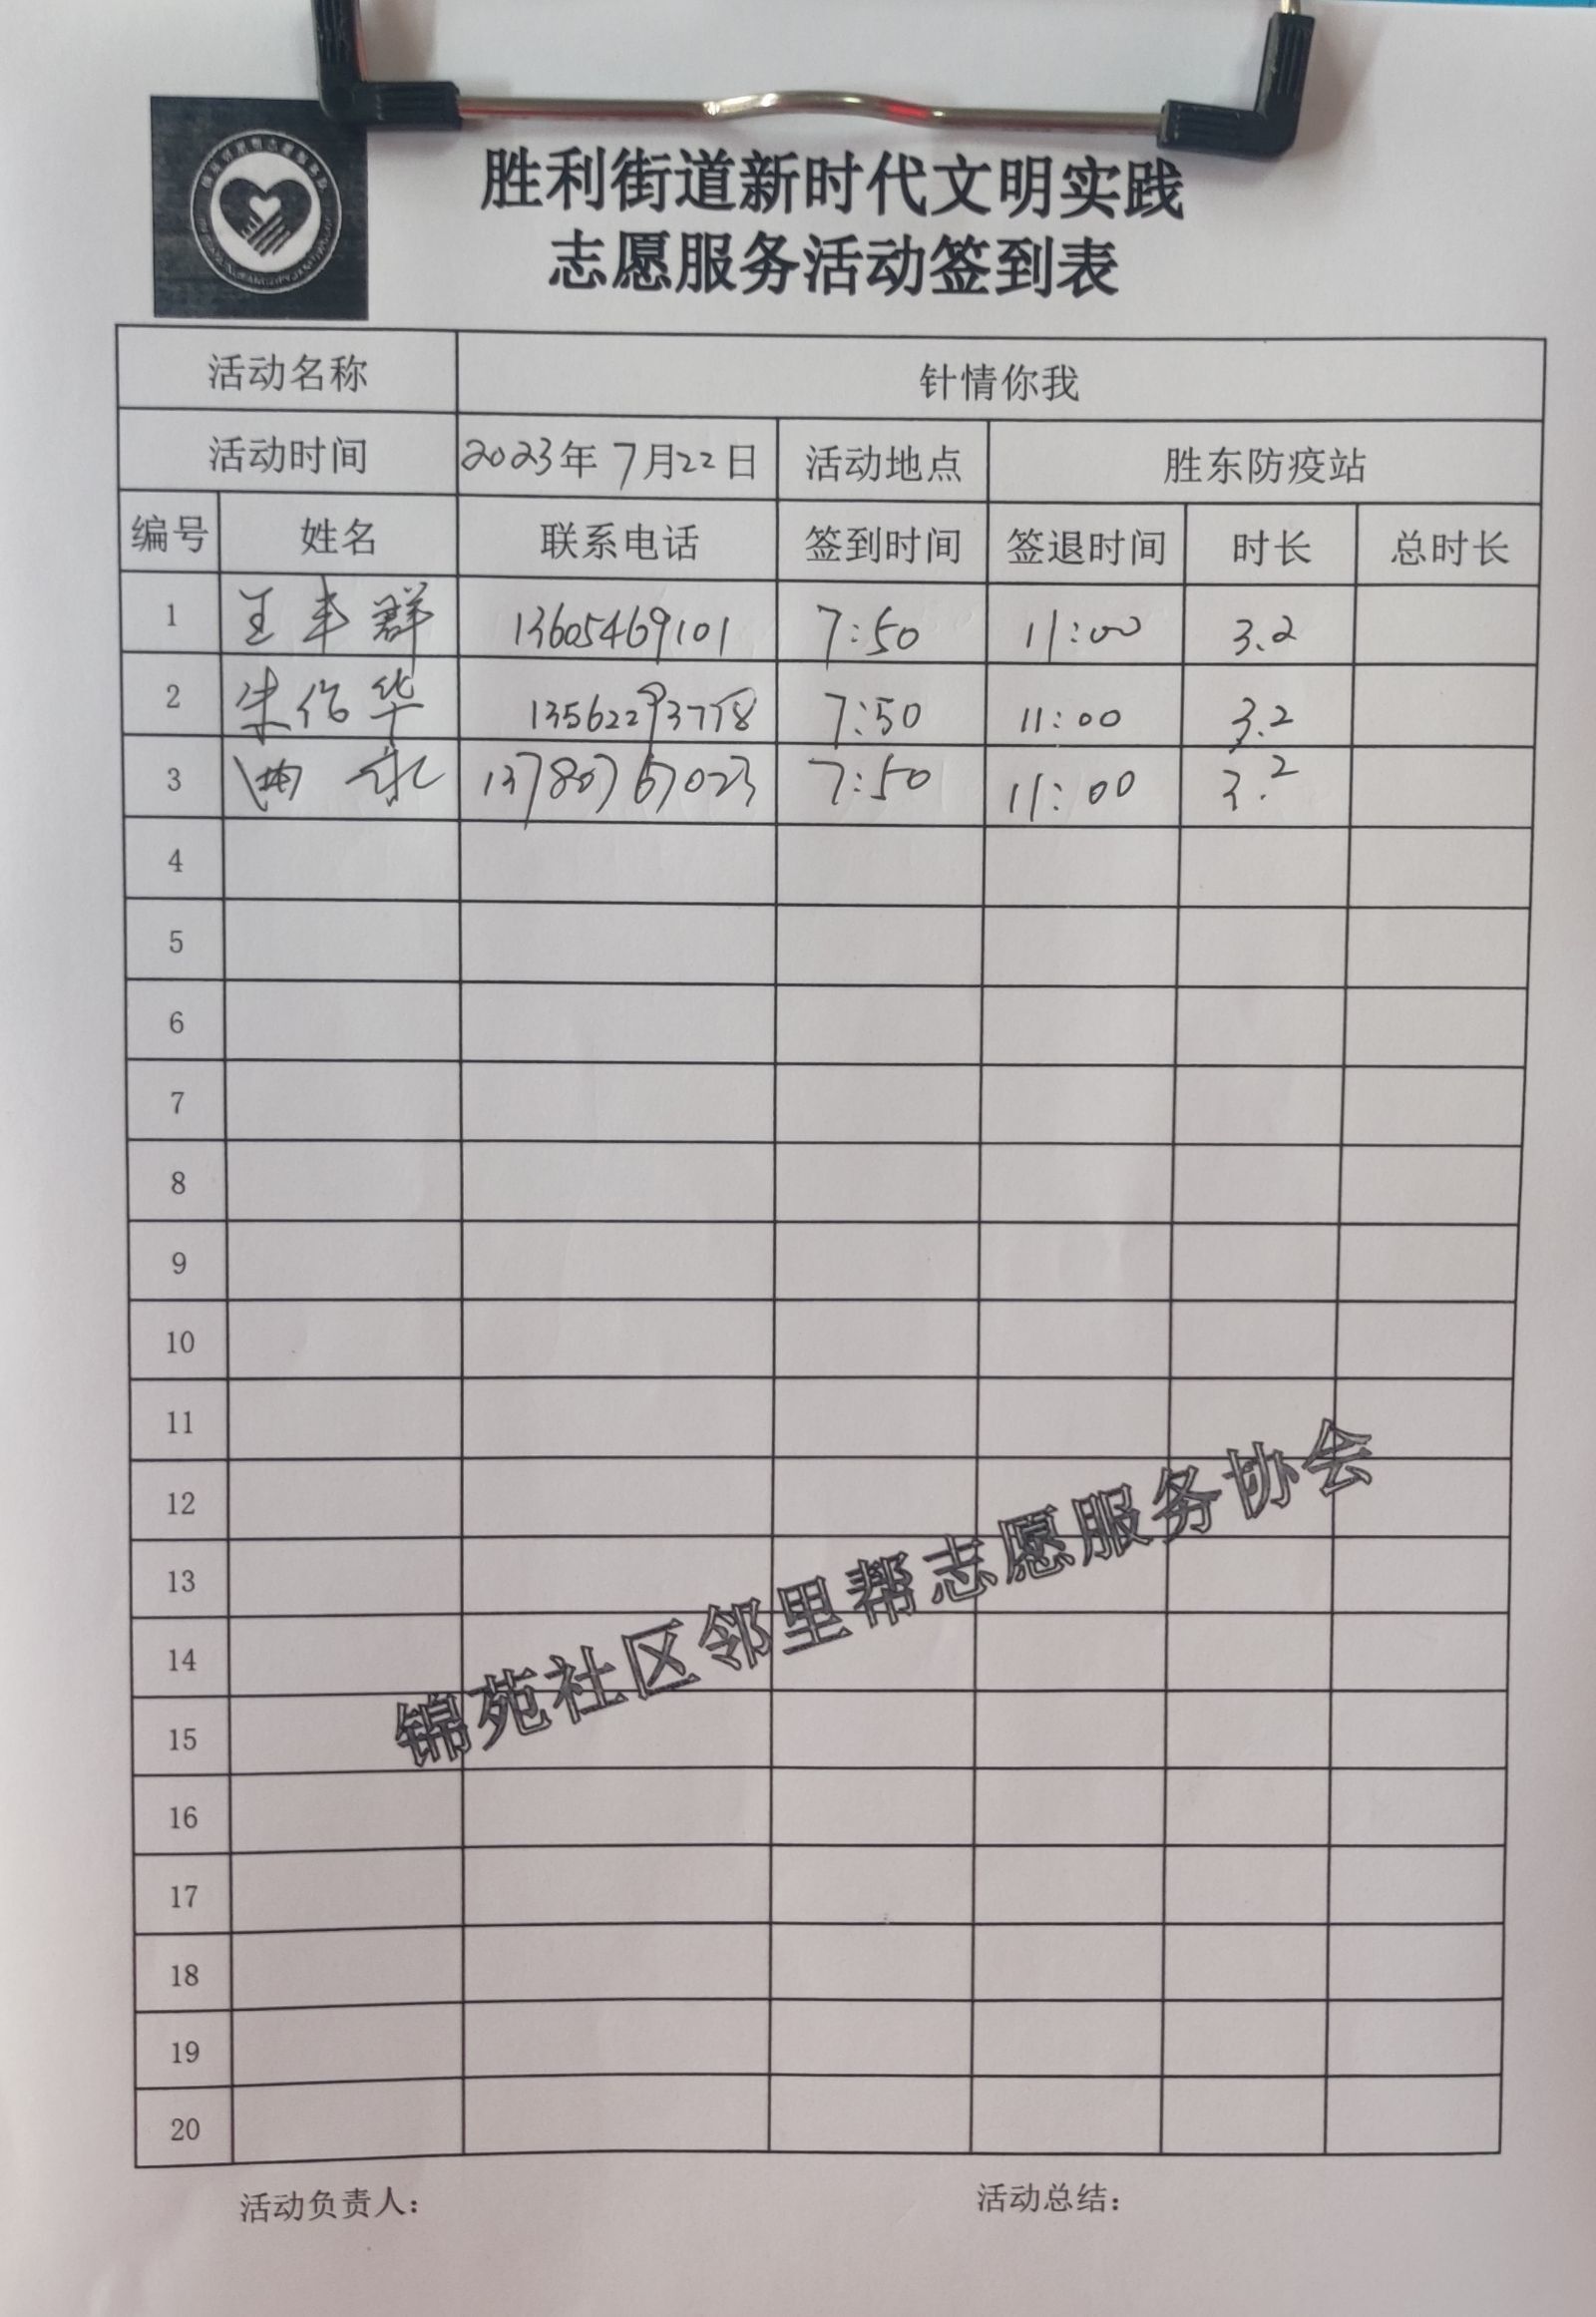 胜利街道新时代文明实践
志愿服务活动签到表
活动名称 针情你我
活动时间 2023年7月22日 活动地点 胜东防疫站
编号 姓名 联系电话 签到时间 签退时间 时长 总时长
1 王丰群 13605469101 7:50 11:00 3.2
2 朱伯华 7:50 11:00 3.2
3 13780767023 7:50 11:00 3.2
4
5
6
7
8
9
10
11
12
13
14
15
16
17
18
19
20
锦苑社区邻里帮志愿服务协会
活动负责人： 活动总结：